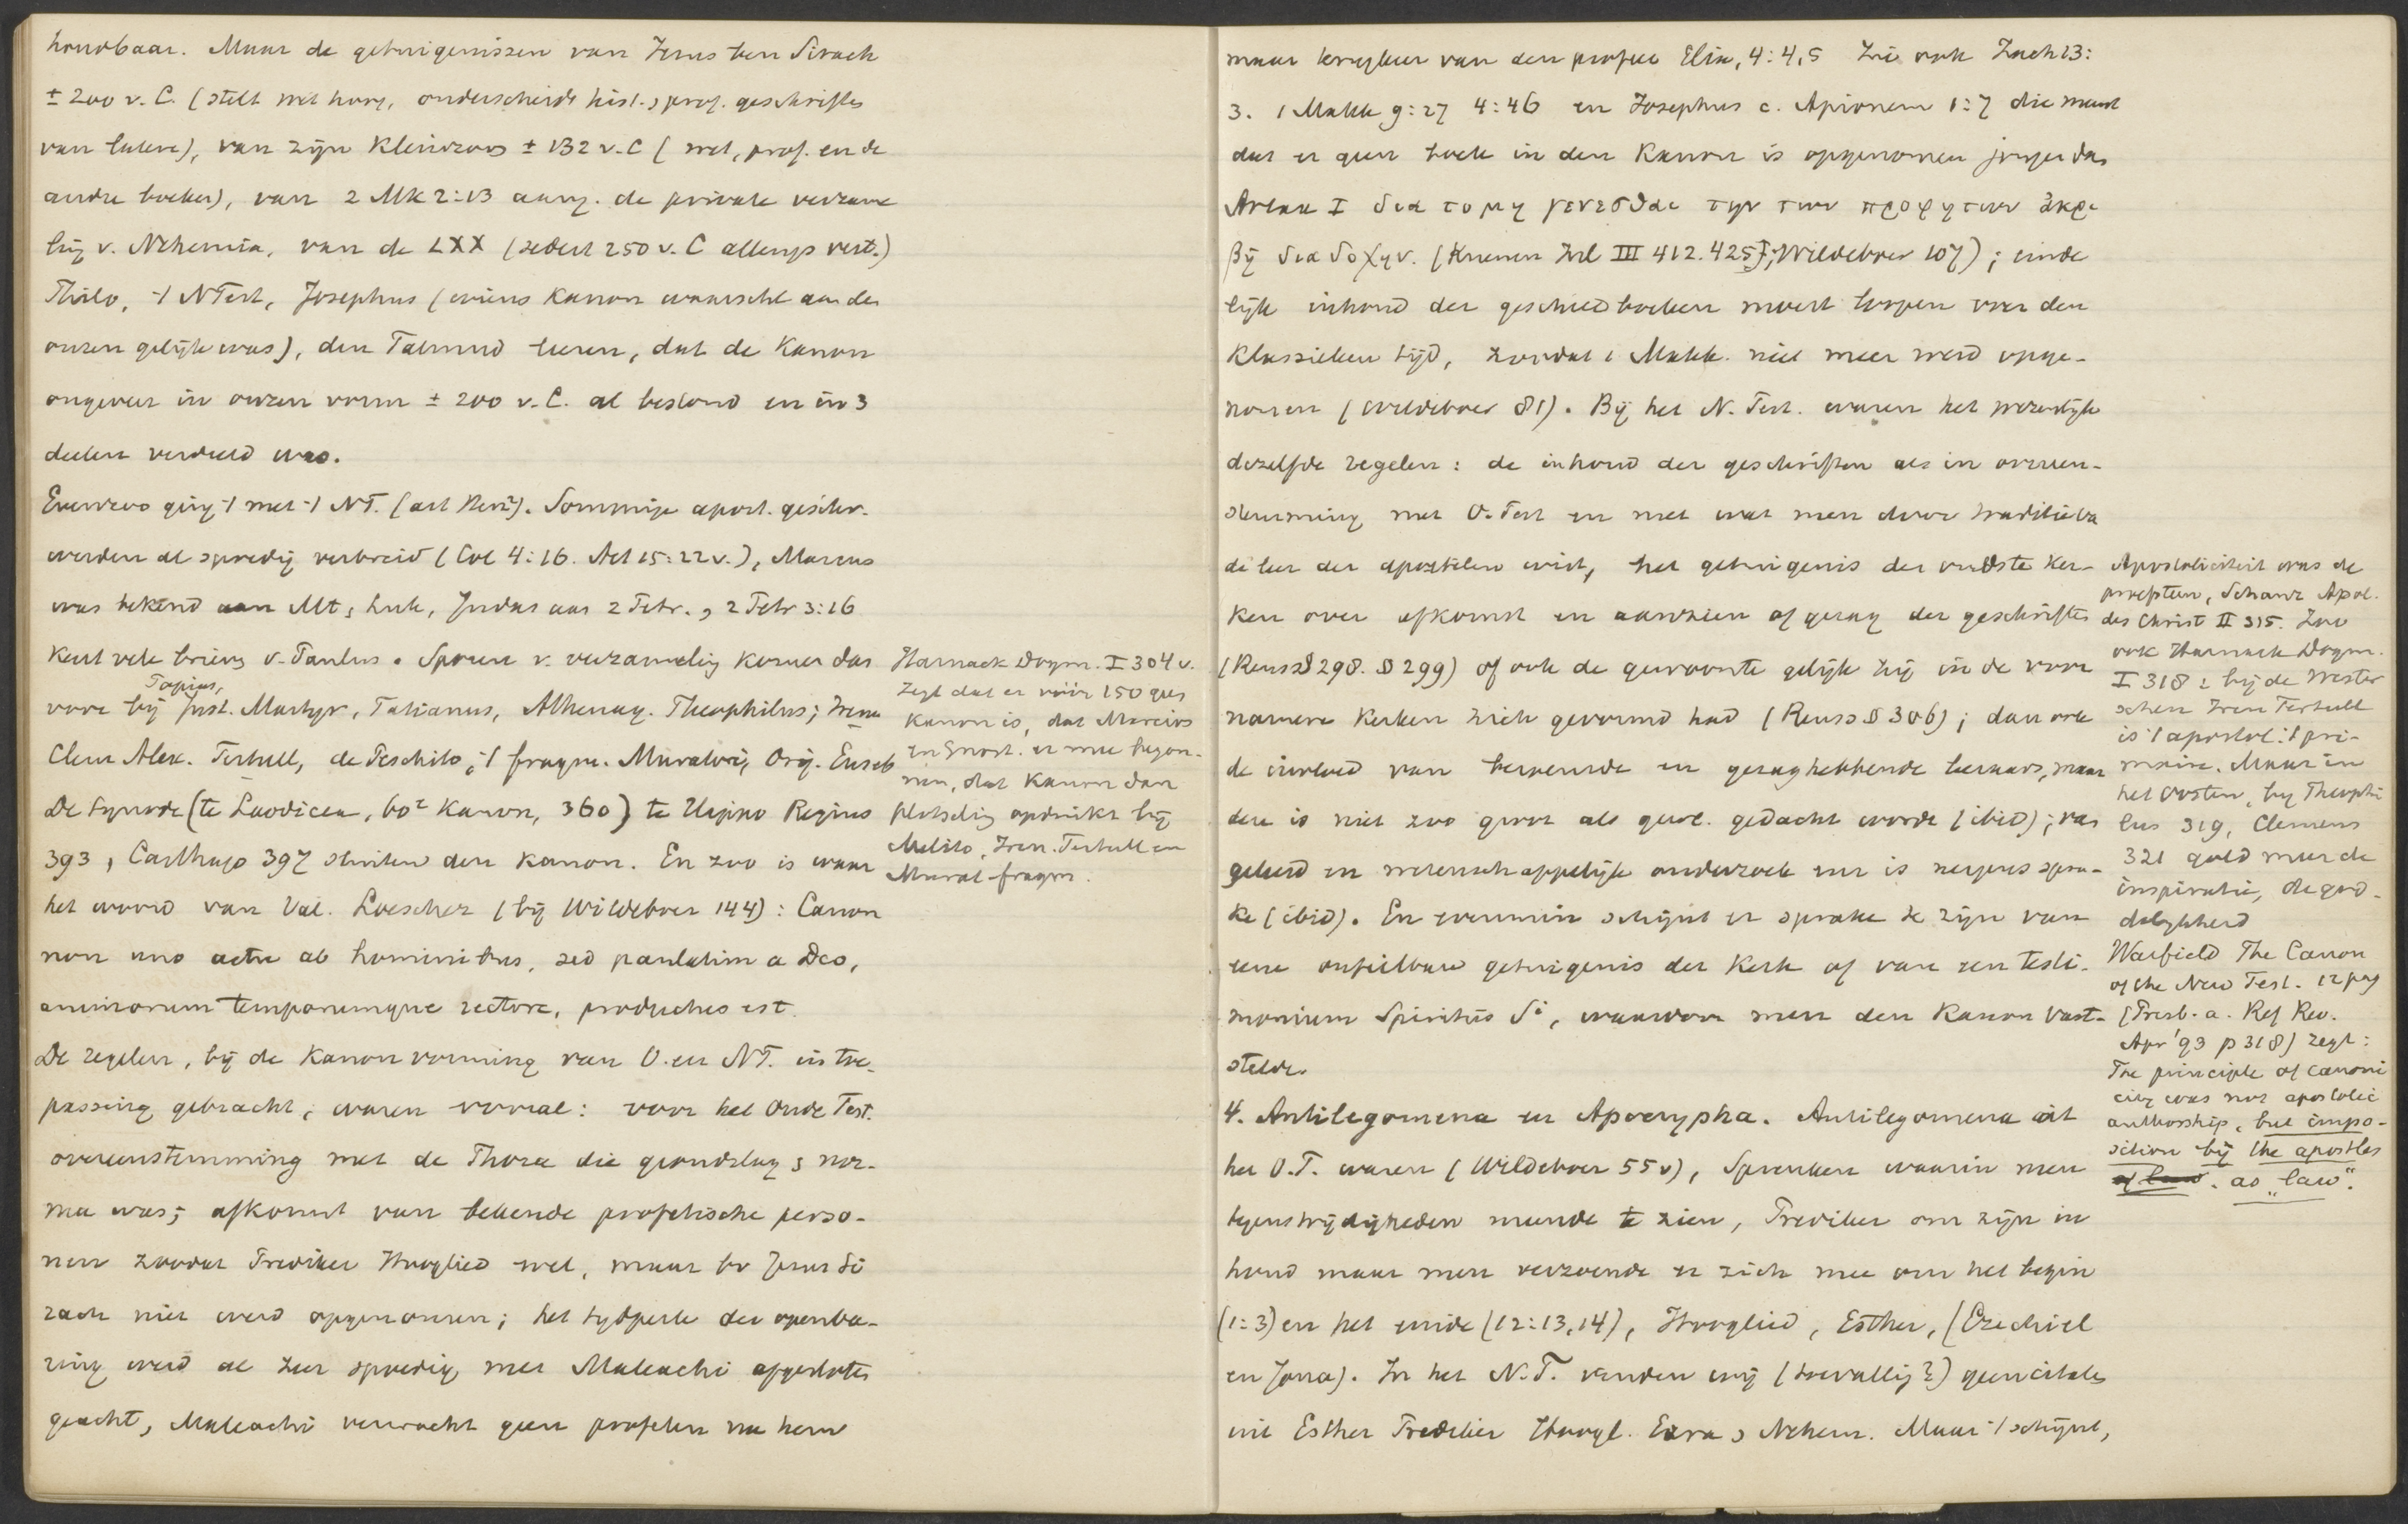 houdbaar. Maar de getuigenissen van Jezus ben Sirach
± 200 v. C. (stelt wet hoog, onderscheidt hist. & prof. geschriften
van latere), van zijn kleinzoon ± 132 v. C (wet, prof. en de
andre boeken), van 2 Mk 2:13 aang. de private verzame
ling v. Nehemia, van de LXX (sedert 250 v. C allengs vert.)
Philo, -/ NTest, Josephus (wiens Kanon waarschl aan den
onzen gelijk was), den Talmud leeren, dat de Kanon
ongeveer in onzen vorm ± 200 v. C. al bestond en in 3
deelen verdeeld was.
Evenzoo ging -/ met -/ NT. (art Herz²). Sommige apost. geschr.
werden al spoedig verbreid (Col 4:16. Act 15:22 v.), Marcus
was bekend aan Mt & Luk, Judas aan 2 Petr. & 2 Petr 3:16
kent vele brieven v. Paulus. Sporen v. verzameling komen dan
Papias,
voor bij Just. Martyr, Tatianus, Athenag. Theophilus; Iren
Clem Alex. Tertull, de Peschito, -/ fragm. Muratori, Orig. Euseb
De synode (te Laodicea, 60e Kanon, 360) te Hippo Regius
393, Carthago 397 sluiten den Kanon. En zoo is waar
het woord van Val. Loescher (bij Wildeboer 144): Canon
non uno actu ab hominibus, sed paulatim a Deo,
animorum temporumque rectore, productus est.
De regelen, bij de Kanonvorming van O. en NT. in toe-
passing gebracht, waren vooral: voor het Oude Test.
overeenstemming met de Thora die grondslag & nor-
ma was; afkomst van bekende profetische perso-
nen zoodat Prediker Hooglied wel, maar bv Jezus Si
rach niet werd opgenomen; het tijdperk der openba-
ring werd al zeer spoedig met Maleachi afgesloten
geacht, Maleachi verwacht geen profeten na hem
Harnack Dogm. I 304 v.
zegt dat er vóór 150 geen
Kanon is, dat Marcion
en Gnost. er mee begon-
nen, dat Kanon dan
plotseling opduikt bij
Melito, Iren. Tertull en
Murat fragm.
maar terugkeer van den profeet Elia, 4:4,5 Zie ook Zach 13:
3. 1 Makk 9:27 4:46 en Josephus c. Apionem 1:7 die meent
dat er geen boek in den Kanon is opgenomen jonger dan
Artax I δια το μη γενεσθαι την των προφητων ἀκρι
βῆ διαδοχην. (Kuenen Inl III 412. 425; Wildeboer 107); einde
lijk inhoud der geschiedboeken moest loopen over den
klassieken tijd, zoodat 1 Makk. niet meer werd opge-
nomen (Wildeboer 81). Bij het N. Test. waren het wezenlijk
dezelfde regelen: de inhoud der geschriften als in overeen-
stemming met O. Test en met wat men door traditie van
de leer der apostelen wist, het getuigenis der oudste ker-
ken over afkomst en aanzien of gezag der geschriften
(Reuss § 298. § 299) of ook de gewoonte gelijk zij in de voor
namere kerken zich gevormd had (Reuss § 306); dan ook
de invloed van beroemde en gezaghebbende leeraars, maar
deze is niet zoo groot als gewl. gedacht wordt (ibid); van
geleerd en wetenschappelijk onderzoek enz is nergens spra-
ke (ibid). En evenmin schijnt er sprake te zijn van
eene onfeilbare getuigenis der Kerk of van een testi-
monium Spiritus Si, waardoor men den Kanon vast-
stelde.
4. Antilegomena en Apocrypha. Antilegomena uit
het O.T. waren (Wildeboer 55 v), Spreuken waarin men
tegenstrijdigheden meende te zien, Prediker om zijn in
houd maar men verzoende er zich mee om het begin
(1:3) en het einde (12:13,14), Hooglied, Esther, (Ezechiel
en Jona). In het N.T. vinden wij (toevallig?) geen citaten
uit Esther Prediker Hoogl. Ezra & Nehem. Maar -/ schijnt,
Apostoliciteit was de
præpteur, Schanz Apol.
des Christ II 315. Zoo
ook Harnack Dogm.
I 318: bij de Wester
schen Iren Tertull
is -/ apostol. -/ pri-
maire. Maar in
het Oosten, by Theophi
lus 319, Clemens
321 gold meer de
inspiratie, de god-
delijkheid
Warfield The Canon
of the New Test. 12 pag
(Presb. a. Ref Rev.
Apr '93 p 318) zegt:
The principle of canoni
city was not apostolic
authorship, but impo-
sition by the apostles
of law. as „law".